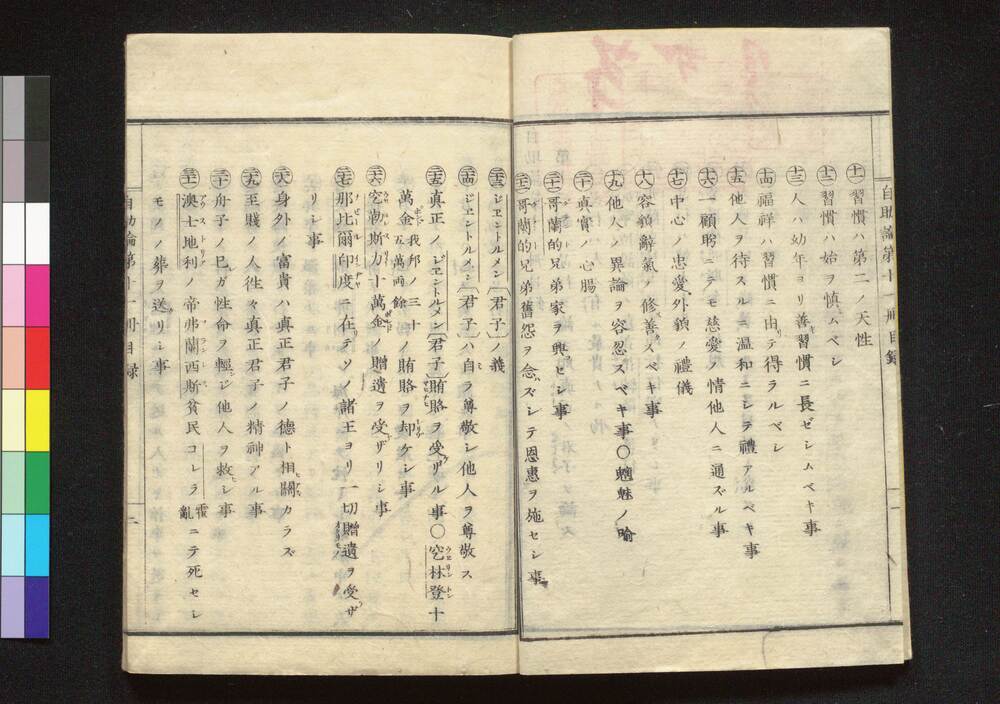 自助論第十一冊目録 一
十一 習慣ハ第二ノ天性
十二 習慣ハ始ヲ慎ムベシ
十三 人ハ幼年ヨリ善習慣ニ長ゼシムベキ事
十四 福祥ハ習慣ニ由リテ得ラルベシ
十五 他人ヲ待スルニ温和ニシテ禮アルベキ事
十六 一顧眄ニテモ慈愛ノ情他人ニ通ズル事
十七 中心ノ忠愛外貌ノ禮儀
十八 容貌辭氣ノ修善スベキ事
十九 他人ノ異論ヲ容忍スベキ事○魑魅ノ喩
二十 真實ノ心腸
二十一 哥蘭的兄弟家ヲ興セシ事
二十二 哥蘭的兄弟舊怨ヲ念ハズシテ恩惠ヲ施セシ事
二十三 ジエントルメン〔君子〕ノ義
二十四 ジエントルメン〔君子〕ハ自ラ尊敬シ他人ヲ尊敬ス
二十五 真正ノジエントルメン〔君子〕賄賂ヲ受ザル事○空林登十
萬金我邦ノ三十五萬兩餘ノ賄賂ヲ却ケシ事
二十六 空勒斯力十萬金ノ贈遺ヲ受ザリシ事
二十七 那比爾印度ニ在テソノ諸王ヨリ一切贈遺ヲ受ザ
リシ事
二十八 身外ノ富貴ハ真正君子ノ德ト相關カラズ
二十九 至賤ノ人徃々真正君子ノ精神アル事
三十 舟子ノ已ガ性命ヲ輕ジ他人ヲ救シ事
三十一 澳士地利ノ帝弗蘭西斯貧民コレラ霍亂ニテ死セシ
モノノ葬ヲ送リシ事
自助論第十一冊目録 二